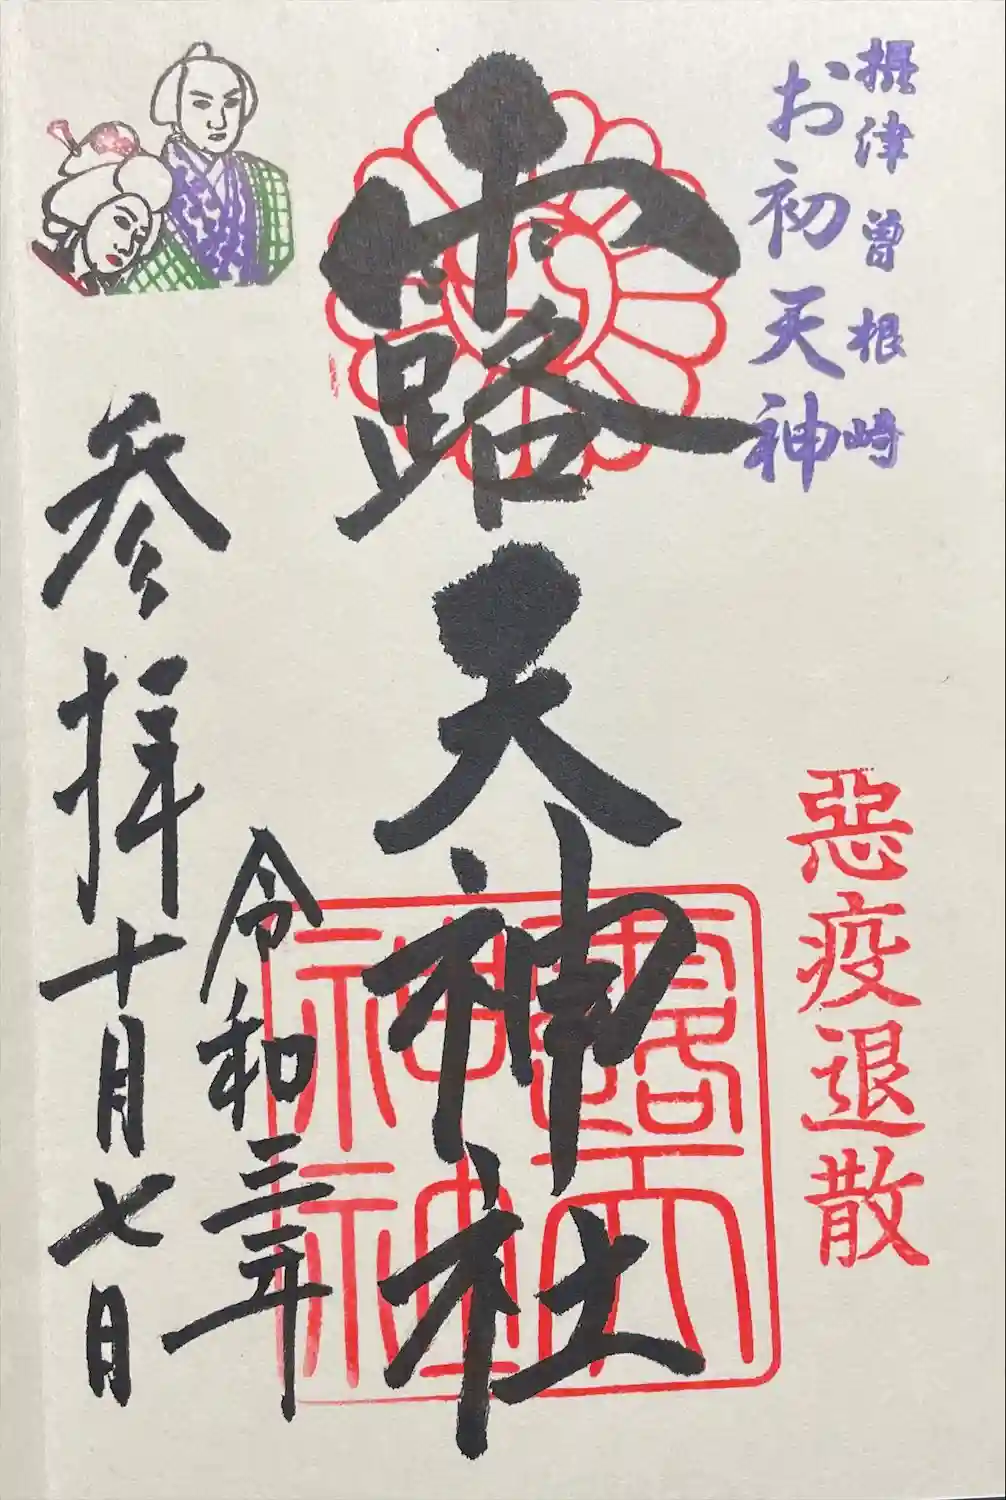 摂津曽根崎
お初天神
悪疫退散
露天神社
露天
神社
令和三年
参拝十月七日